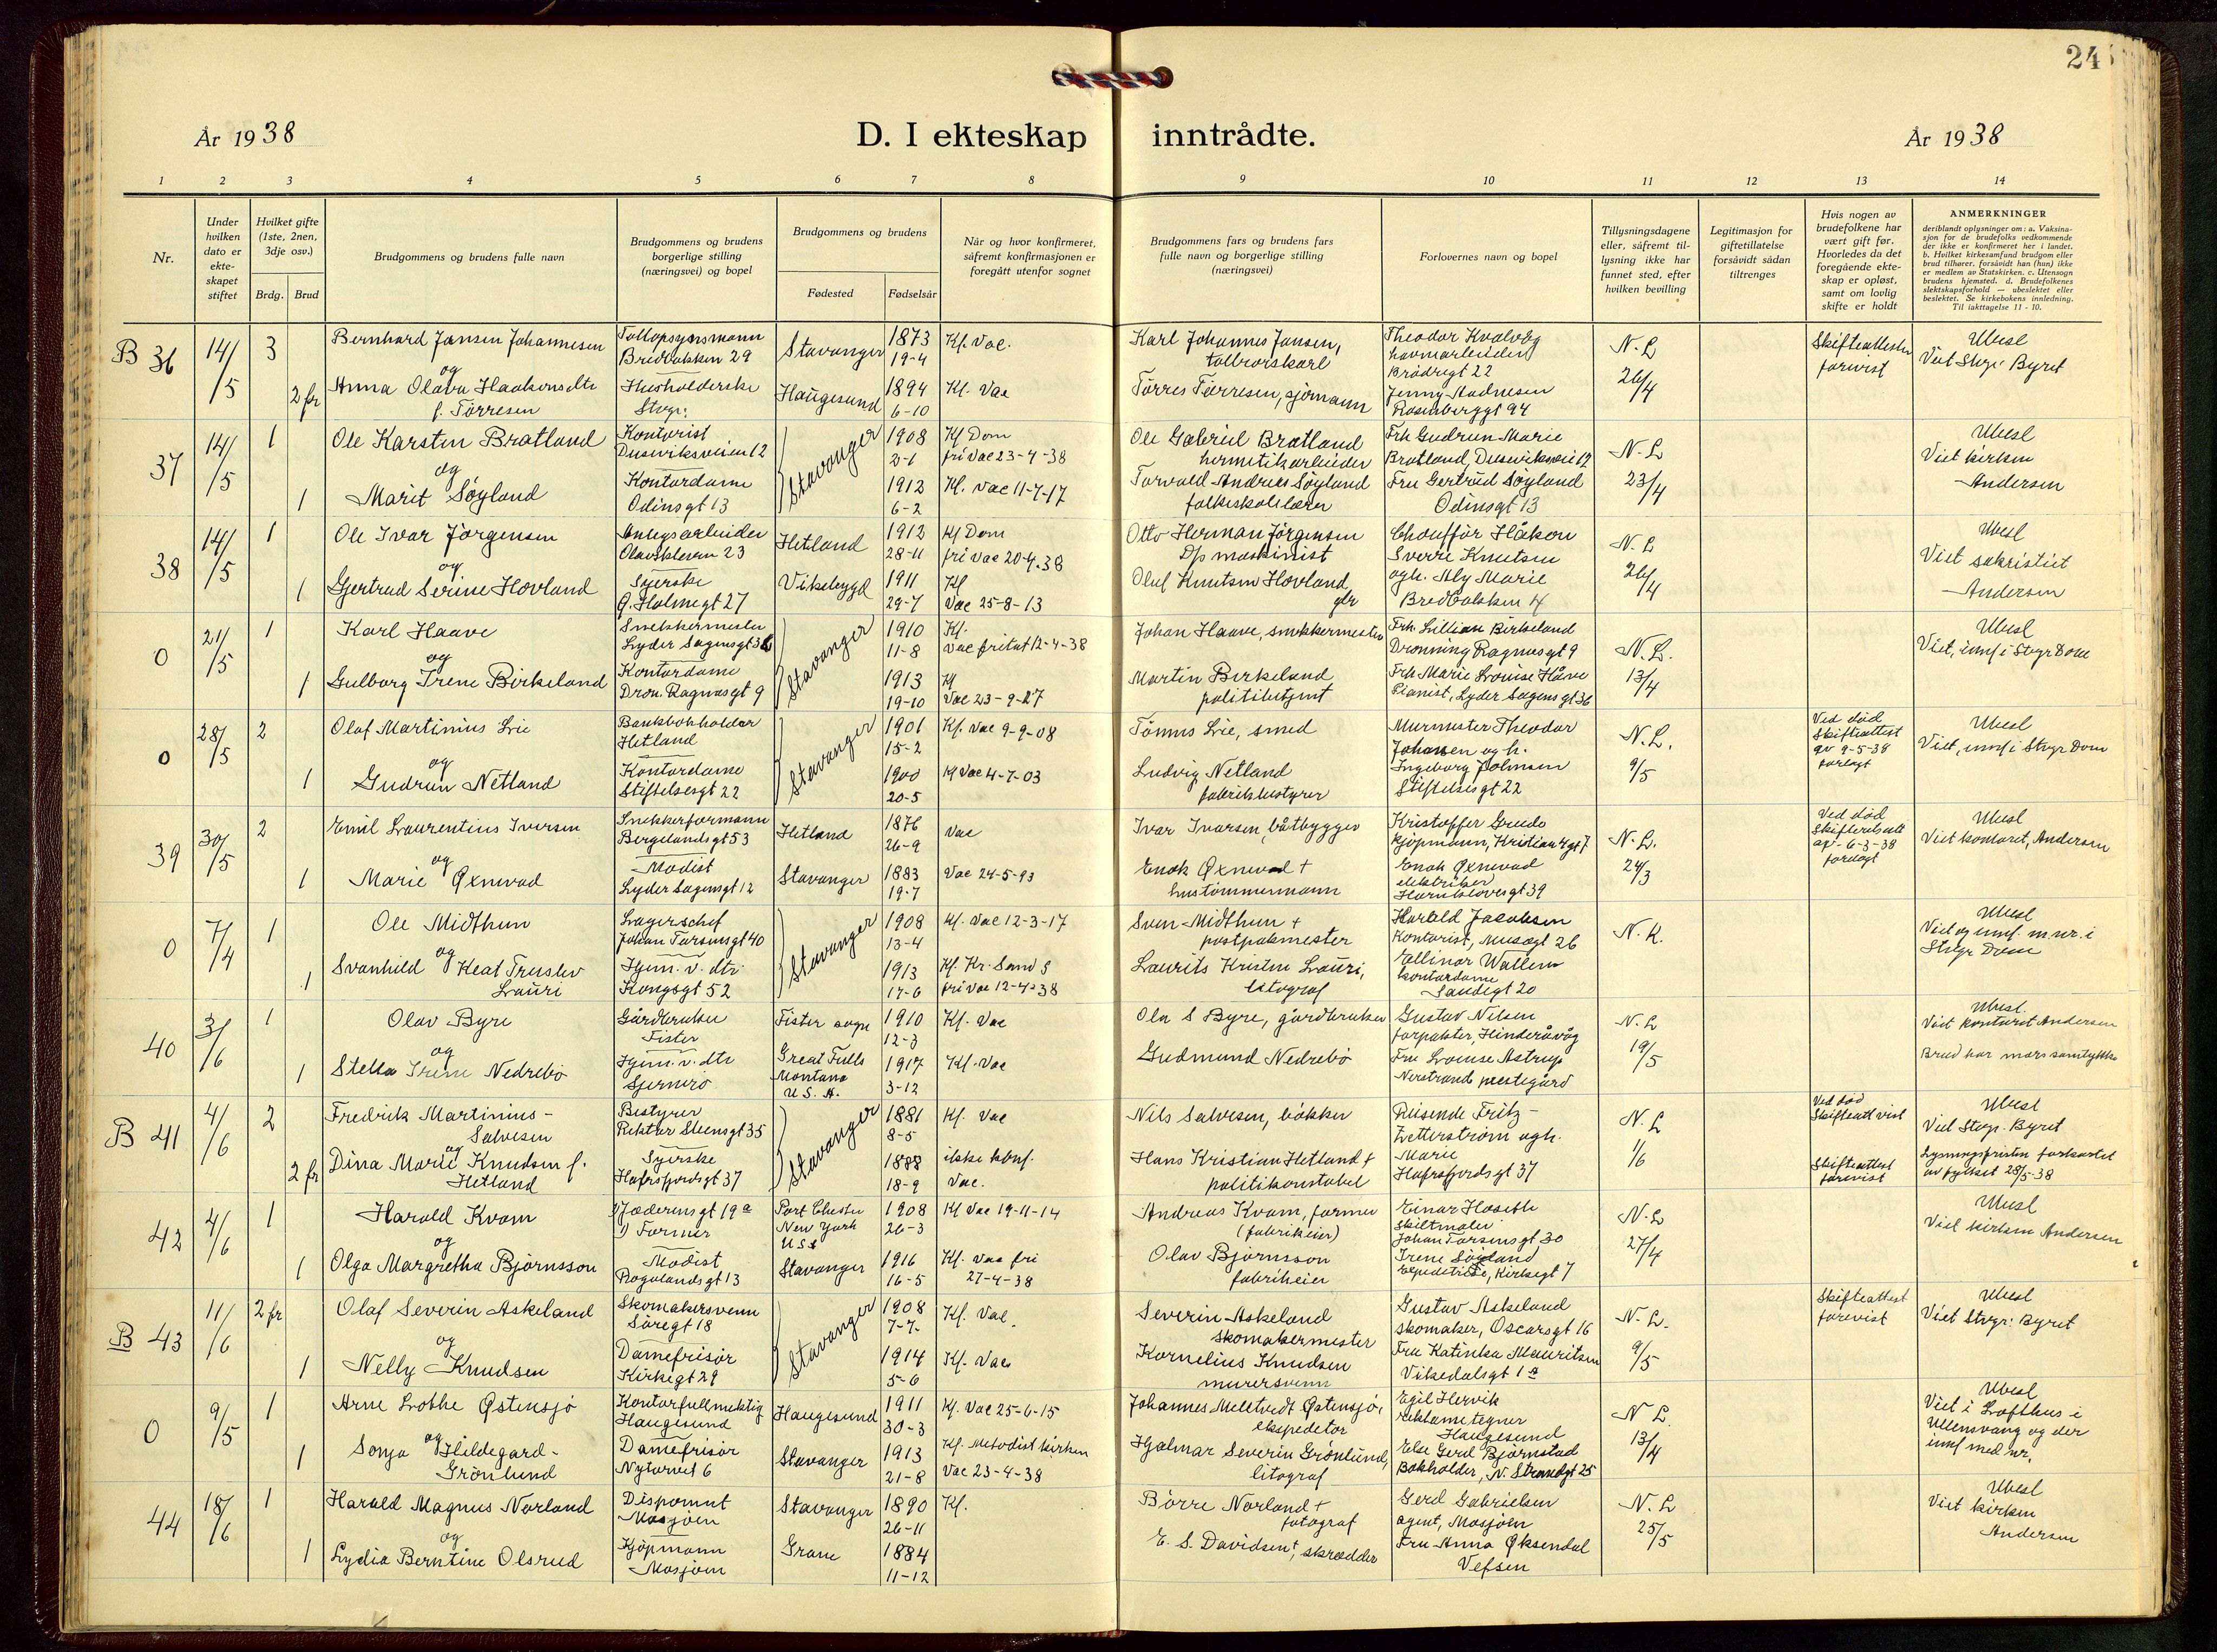 24
År 1938
D. I ekteskap inntrådte.
År 1938
1 2 3 4 5 6 7 8 9 10 11 12 13 14
Nr.
Under hvilken dato er ekte- skapet stiftet
Hvilket gifte (1ste, 2nen, 3dje osv.)
Brdg. Brud
Brudgommens og brudens fulle navn
Brudgommens og brudens borgerlige stilling (næringsvei) og bopel
Brudgommens og brudens
Fødested Fødselsår
Når og hvor konfirmeret, såfremt konfirmasjonen er foregått utenfor sognet
Brudgommens fars og brudens fars fulle navn og borgerlige stilling (næringsvei)
Forlovernes navn og bopel
Tillysningsdagene eller, såfremt til- lysning ikke har funnet sted, efter hvilken bevilling
Legitimasjon for giftetillatelse forsåvidt sådan tiltrenges
Hvis nogen av brudefolkene har vært gift før. Hvorledes da det foregående ekte- skap er opløst, samt om lovlig skifte er holdt
ANMERKNINGER
deriblandt oplysninger om: a. Vaksina- sjon for de brudefolks vedkommende der ikke er konfirmeret her i landet. b. Hvilket kirkesamfund brudgom eller brud tilhører, forsåvidt han (hun) ikke er medlem av Statskirken. c. Utensogn brudens hjemsted. d. Brudefolkenes slektskapsforhold — ubeslektet eller beslektet. Se kirkebokens innledning. Til iakttagelse 11 - 10.
B 36 14/5 3 Bernhard Jansen Johannesen Tollopsynsmann Bredbakken 29 Stavanger 1873 19-4 Kf. Vac. Karl Johannes Jansen, tolbrorskarl Theodor Kvalvåg havnarbeider Brødregt 22 N.L 26/4 Skifteattester forevist Ubesl Viet Stvgr Byret
og
2 fr Anna Olava Haakonsdtr f. Tørresen Husholderske Stvgr: Haugesund 1894 6-10 Kf. Vac Tørres Tørresen, sjømann Jenny Andresen Rosenberggt 94
37 14/5 1 Ole Karsten Bratland Kontorist Dusevikveien 12 Stavanger 1908 2-1 Kf Dom fri Vac 23-4-38 Ole Gabriel Bratland hermetikarbeider Frk Gudrun Marie Bratland, Dusevikveie 12 N-L 23/4 Ubesl Viet kirken Andersen
og
1 Marit Søyland Kontordame Odinsgt 13 1912 6-2 Kf. Vac 11-7-17 Torvald Andreas Søyland folkeskolelærer Fru Gertrud Søyland Odinsgt 13
38 14/5 1 Ole Ivar Jørgensen Anlegsarbeider Olavskleven 23 Hetland 1912 28-11 Kf Dom fri Vac 20-4-38 Otto Herman Jørgensen D/p maskinist Chauffør Håkon Sverre Knutsen N-L 26/4 Ubesl Viet sakristiet Andersen
og
1 Gjertrud Serine Hovland Syerske G. Holmegt 27 Vikebygd 1911 29-7 Kf Vac 25-8-13 Oluf Knutsen Hovland gbr ogh. Aly Marie Bredbakken 4
0 21/5 1 Karl Haave Snekkermester Lyder Sagensgt 36 Stavanger 1910 11-8 Kf. Vac fritat 12-4-38 Johan Haave, snekkermester Frk. Lillian Birkeland Dronning Ragnasgt 9 N.L. 13/4 Ubesl Viet, innf i Stvgr Dom
og
1 Gulborg Irene Birkeland Kontordame Dron. Ragnasgt 9 1913 19-10 Kf Vac 23-9-27 Martin Birkeland politibetjent Frk Marie Louise Håve Pianist, Lyder Sagensgt 36
0 28/5 2 Olaf Martinius Lie Bankbokholder Hetland Stavanger 1901 15-2 Kf. Vac 9-9-08 Tønnes Lie, smed Murmester Theodor Johansen og h. N.L. 9/5 Ved død Skifteattest av 9-5-38 forlagt Ubesl Viet, innf i Stvgr Dom
og
1 Gudrun Netland Kontordame Stiftelsesgt 22 1900 20-5 Kf Vac 4-7-03 Ludvig Netland fabrikkbestyrer Ingeborg Stiftelsesgt 22
39 30/5 2 Emil Laurentius Iversen Snekkerformann Bergelandsgt 53 Hetland 1876 26-9 Vac Ivar Ivarsen, båtbygger Kristoffer Grude Kjøpmann, Kristian 4 gt 7 N-L. 24/3 Ved død av 6-3-38 forlagt Ubesl Viet kontoret, Andersen
og
1 Marie Øxnevad Modist Lyder Sagensgt 12 Stavanger 1883 19-7 Vac 24-5-93 Enok Øxnevad + hustømmermann Enok Øxnevad elektriker Harnkloversgt 39
0 7/4 1 Ole Midthun Lagerschef Johan Torsensgt 40 Stavanger 1908 13-4 Kf. Vac 12-3-17 Sven Midthun + postpakmester Harald Jacobsen Kontorist, Musegt 26 N.K. Ubesl Viet og innf. m.nr. i Stvgr Dom
og
1 Svanhild Keat Truslev Lauri Hjem. v. dtr. Kongsgt 52 1913 17-6 Kf. Kr. Sand S fri Vac 12-4-38 Laurits Kristen Lauri, litograf Ellinor Wallem kontordame Sandegt 20
40 3/6 1 Olav Byre Gårdbruker Fister Fister sogn 1910 12-3 Kf. Vac Ola S Byre, gårdbruker Gustav Nilsen forpakter, Hinderåvåg N-L 19/5 Ubesl. Viet kontoret Andersen
og
1 Stella Irene Nedrebø Hjem. v. dtr Sjernerø Great Falls Montana U.S.A. 1917 3-12 Kf. Vac Gudmund Nedrebø Fru Louise Astrup Nerstrand prestegård Brud har mors samtykke
B 41 4/6 2 Fredrik Martinius- Salvesen Bestyrer Rektor Steensgt 35 Stavanger 1881 8-5 Kf. Vac Nils Salvesen, bøkker Reisende Fritz- Zetterstrøm ogh. N-L 1/6 Ved død Skifteatt vist Ubesl Viet Stvgr. Byret
og
2 fr Dina Marie Knudsen f. Hetland Syerske Hafrsfjordsgt 37 1888 18-9 ikke konf. Vac. Hans Kristian Hetland + politikonstabel Marie Hafrsfjordsgt 37 Skifteattest forevist Lysningsfristen forkortet av fylket 28/5-38
42 4/6 1 Harald Kvam Jæderensgt 19a Farmer Port Chester New York USA 1908 26-3 Kf Vac 19-11-14 Andreas Kvam, farmer (fabrikeier) Einar Haseth skiltmaler Johan Torsensgt 30 N-L 27/4 Ubesl Viet kirken Andersen
og
1 Olga Margretha Bjørnsson Modist Rogalandsgt 13 Stavanger 1916 16-5 Kf. Vac fri 27-4-38 Olav Bjørnsson fabrikeier Irene Søiland Expeditrise, Kirkegt 7
B 43 11/6 2 fr Olaf Severin Askeland Skomakersvenn Søregt 18 Stavanger 1908 7-7- Kf. Vac. Severin Askeland skomakermester Gustav Askeland skomaker, Oscarsgt 16 N-L. 9/5 Skifteattest forevist Ubesl Viet Stvgr: Byret
og
1 Nelly Knudsen Damefrisør Kirkegt 29 1914 5-6 Kf. Vac Kornelius Knudsen murersvenn Fru Katinka Mauritsen Vikedalsgt 1a
0 9/5 1 Arne Lothe Østensjø Kontorfullmektig Haugesund Haugesund 1911 30-3 Kf. Vac 25-6-15 Johannes Meltvedt Østensjø, ekspeditør Egil Hervik reklametegner Haugesund N L. 13/4 Ubesl Viet i Lofthus i Ullensvang og der innf med nr.
og
1 Sonja Hildegard- Grønlund Damefrisør Nytorvet 6 Stavanger 1913 21-8 Kf. Metodistkirken Vac 23-4-38 Hjalmar Severin Grønlund, litograf Else Gerd Bjørnstad Bokholder, N. Strandgt 25
44 18/6 1 Harald Magnus Norland Disponent Mosjøen Stavanger 1890 26-11 Kf. Børre Norland + fotograf Gerd Gabrielsen agent, Mosjøen N.L 25/5 Ubesl Viet kirken Andersen
og
1 Lydia Berntine Olsrud Kjøpmann Mosjøen Grane 1884 11-12 E. S. Davidsen+, skredder Fru Anna Øksendal Vefsen